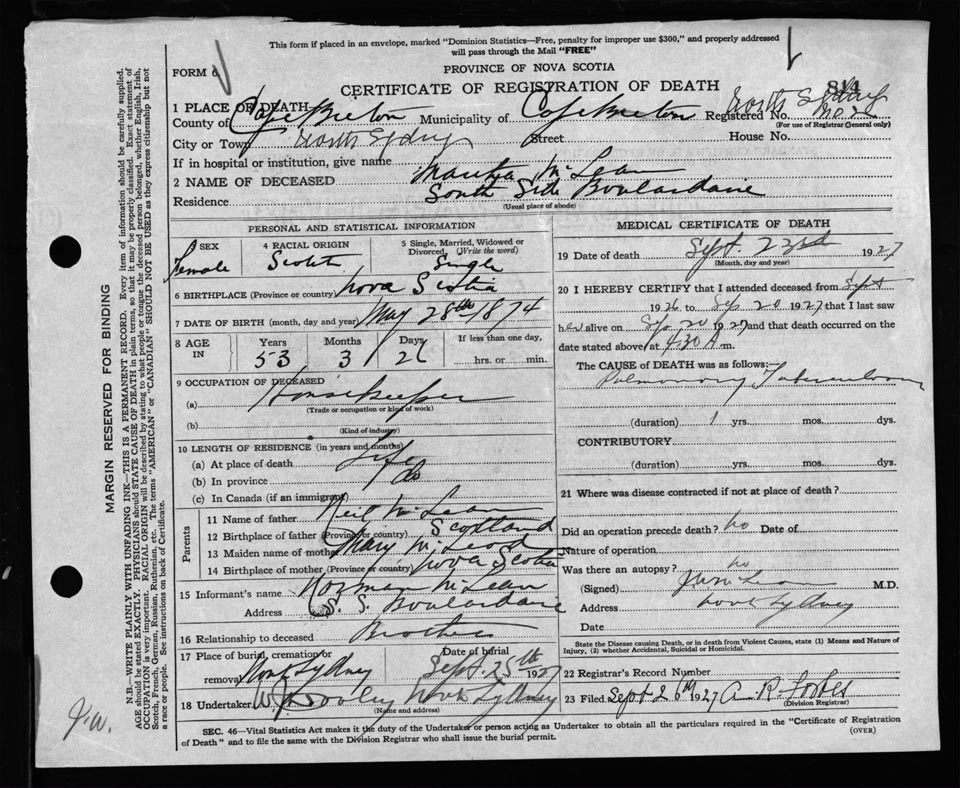 This form if placed in an envelope, marked "Dominion Statistics—Free, penalty for improper use $300," and properly addressed
will pass through the Mail "FREE"
FORM 6
PROVINCE OF NOVA SCOTIA
CERTIFICATE OF REGISTRATION OF DEATH
814
1 PLACE OF DEATH
County of Cape Breton Municipality of Cape Breton Registered No. North Sydney
(For use of Registrar General only)
City or Town North Sydney Street House No.
If in hospital or institution, give name
2 NAME OF DECEASED Martha McLean
Residence South Side Boulardarie
(Usual place of abode)
PERSONAL AND STATISTICAL INFORMATION
SEX Female
4 RACIAL ORIGIN Scotch
5 Single, Married, Widowed or Divorced. (Write the word) Single
6 BIRTHPLACE (Province or country) Nova Scotia
7 DATE OF BIRTH (month, day and year) May 28th 1874
8 AGE IN Years 53 Months 3 Days 26 If less than one day, hrs. or min.
9 OCCUPATION OF DECEASED
(a) Housekeeper
(Trade or occupation or kind of work)
(b)
(Kind of industry)
10 LENGTH OF RESIDENCE (in years and months)
(a) At place of death Life
(b) In province do
(c) In Canada (if an immigrant)
Parents
11 Name of father Neil McLean
12 Birthplace of father (Province or country) Scotland
13 Maiden name of mother Mary McLeod
14 Birthplace of mother (Province or country) Nova Scotia
15 Informant's name Norman McLean
Address S. S. Boulardarie
16 Relationship to deceased Brother
17 Place of burial, cremation or removal North Sydney Date of burial Sept. 25th 1927
18 Undertaker Dooley North Sydney
(Name and address)
MEDICAL CERTIFICATE OF DEATH
19 Date of death Sept. 23rd 1927
(Month, day and year)
20 I HEREBY CERTIFY that I attended deceased from Sept
1926 to Sep 20 1927 that I last saw
her alive on Sep 20 1927 and that death occurred on the
date stated above at 4.30 A m.
The CAUSE OF DEATH was as follows:
Pulmonary Tuberculosis
(duration) 1 yrs. mos. dys.
CONTRIBUTORY
(duration) yrs. mos. dys.
21 Where was disease contracted if not at place of death?
Did an operation precede death? no Date of
Nature of operation
Was there an autopsy? no
(Signed) M.D.
Address North Sydney
Date
State the Disease causing Death, or in death from Violent Causes, state (1) Means and Nature of
Injury, (2) whether Accidental, Suicidal or Homicidal.
22 Registrar's Record Number
23 Filed Sept 26th 1927 A R Forbes
(Division Registrar)
SEC. 46—Vital Statistics Act makes it the duty of the Undertaker or person acting as Undertaker to obtain all the particulars required in the "Certificate of Registration
of Death" and to file the same with the Division Registrar who shall issue the burial permit.
(OVER)
MARGIN RESERVED FOR BINDING
N.B.—WRITE PLAINLY WITH UNFADING INK—THIS IS A PERMANENT RECORD. Every item of information should be carefully supplied.
AGE should be stated EXACTLY. PHYSICIANS should STATE CAUSE OF DEATH in plain terms, so that it may be properly classified. Exact statement of
OCCUPATION is very important. RACIAL ORIGIN will be described by stating to what people or tongue the deceased person belonged, whether English, Irish,
Scotch, French, German, Russian, Ruthenian, etc. The terms "AMERICAN" or "CANADIAN" SHOULD NOT BE USED as they express citizenship but not
a race or people. See instructions on back of Certificate.